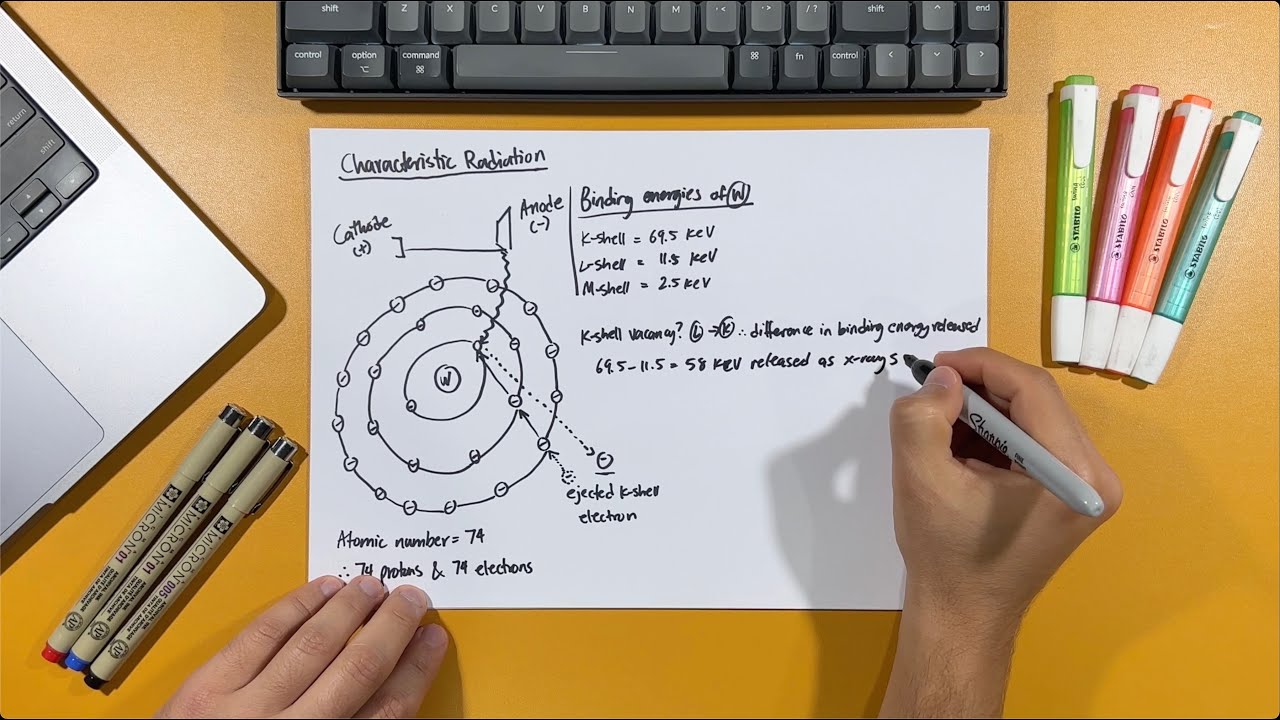 shift Z X C V B N M < > ? / shift ^ end
control option command ⌘ fn control < v >
return
shift
Characteristic Radiation
Cathode
(+)
Anode
(-)
Binding energies of W
K-shell = 69.5 KeV
L-shell = 11.5 KeV
M-shell = 2.5 KeV
K-shell vacancy? L → K ∴ difference in binding energy released
69.5 - 11.5 = 58 KeV released as x-rays
W
ejected K-shell
electron
Atomic number = 74
∴ 74 protons & 74 electrons
MICRON 01
MICRON 01
MICRON 005
STABILO
STABILO
STABILO
STABILO
Sharpie